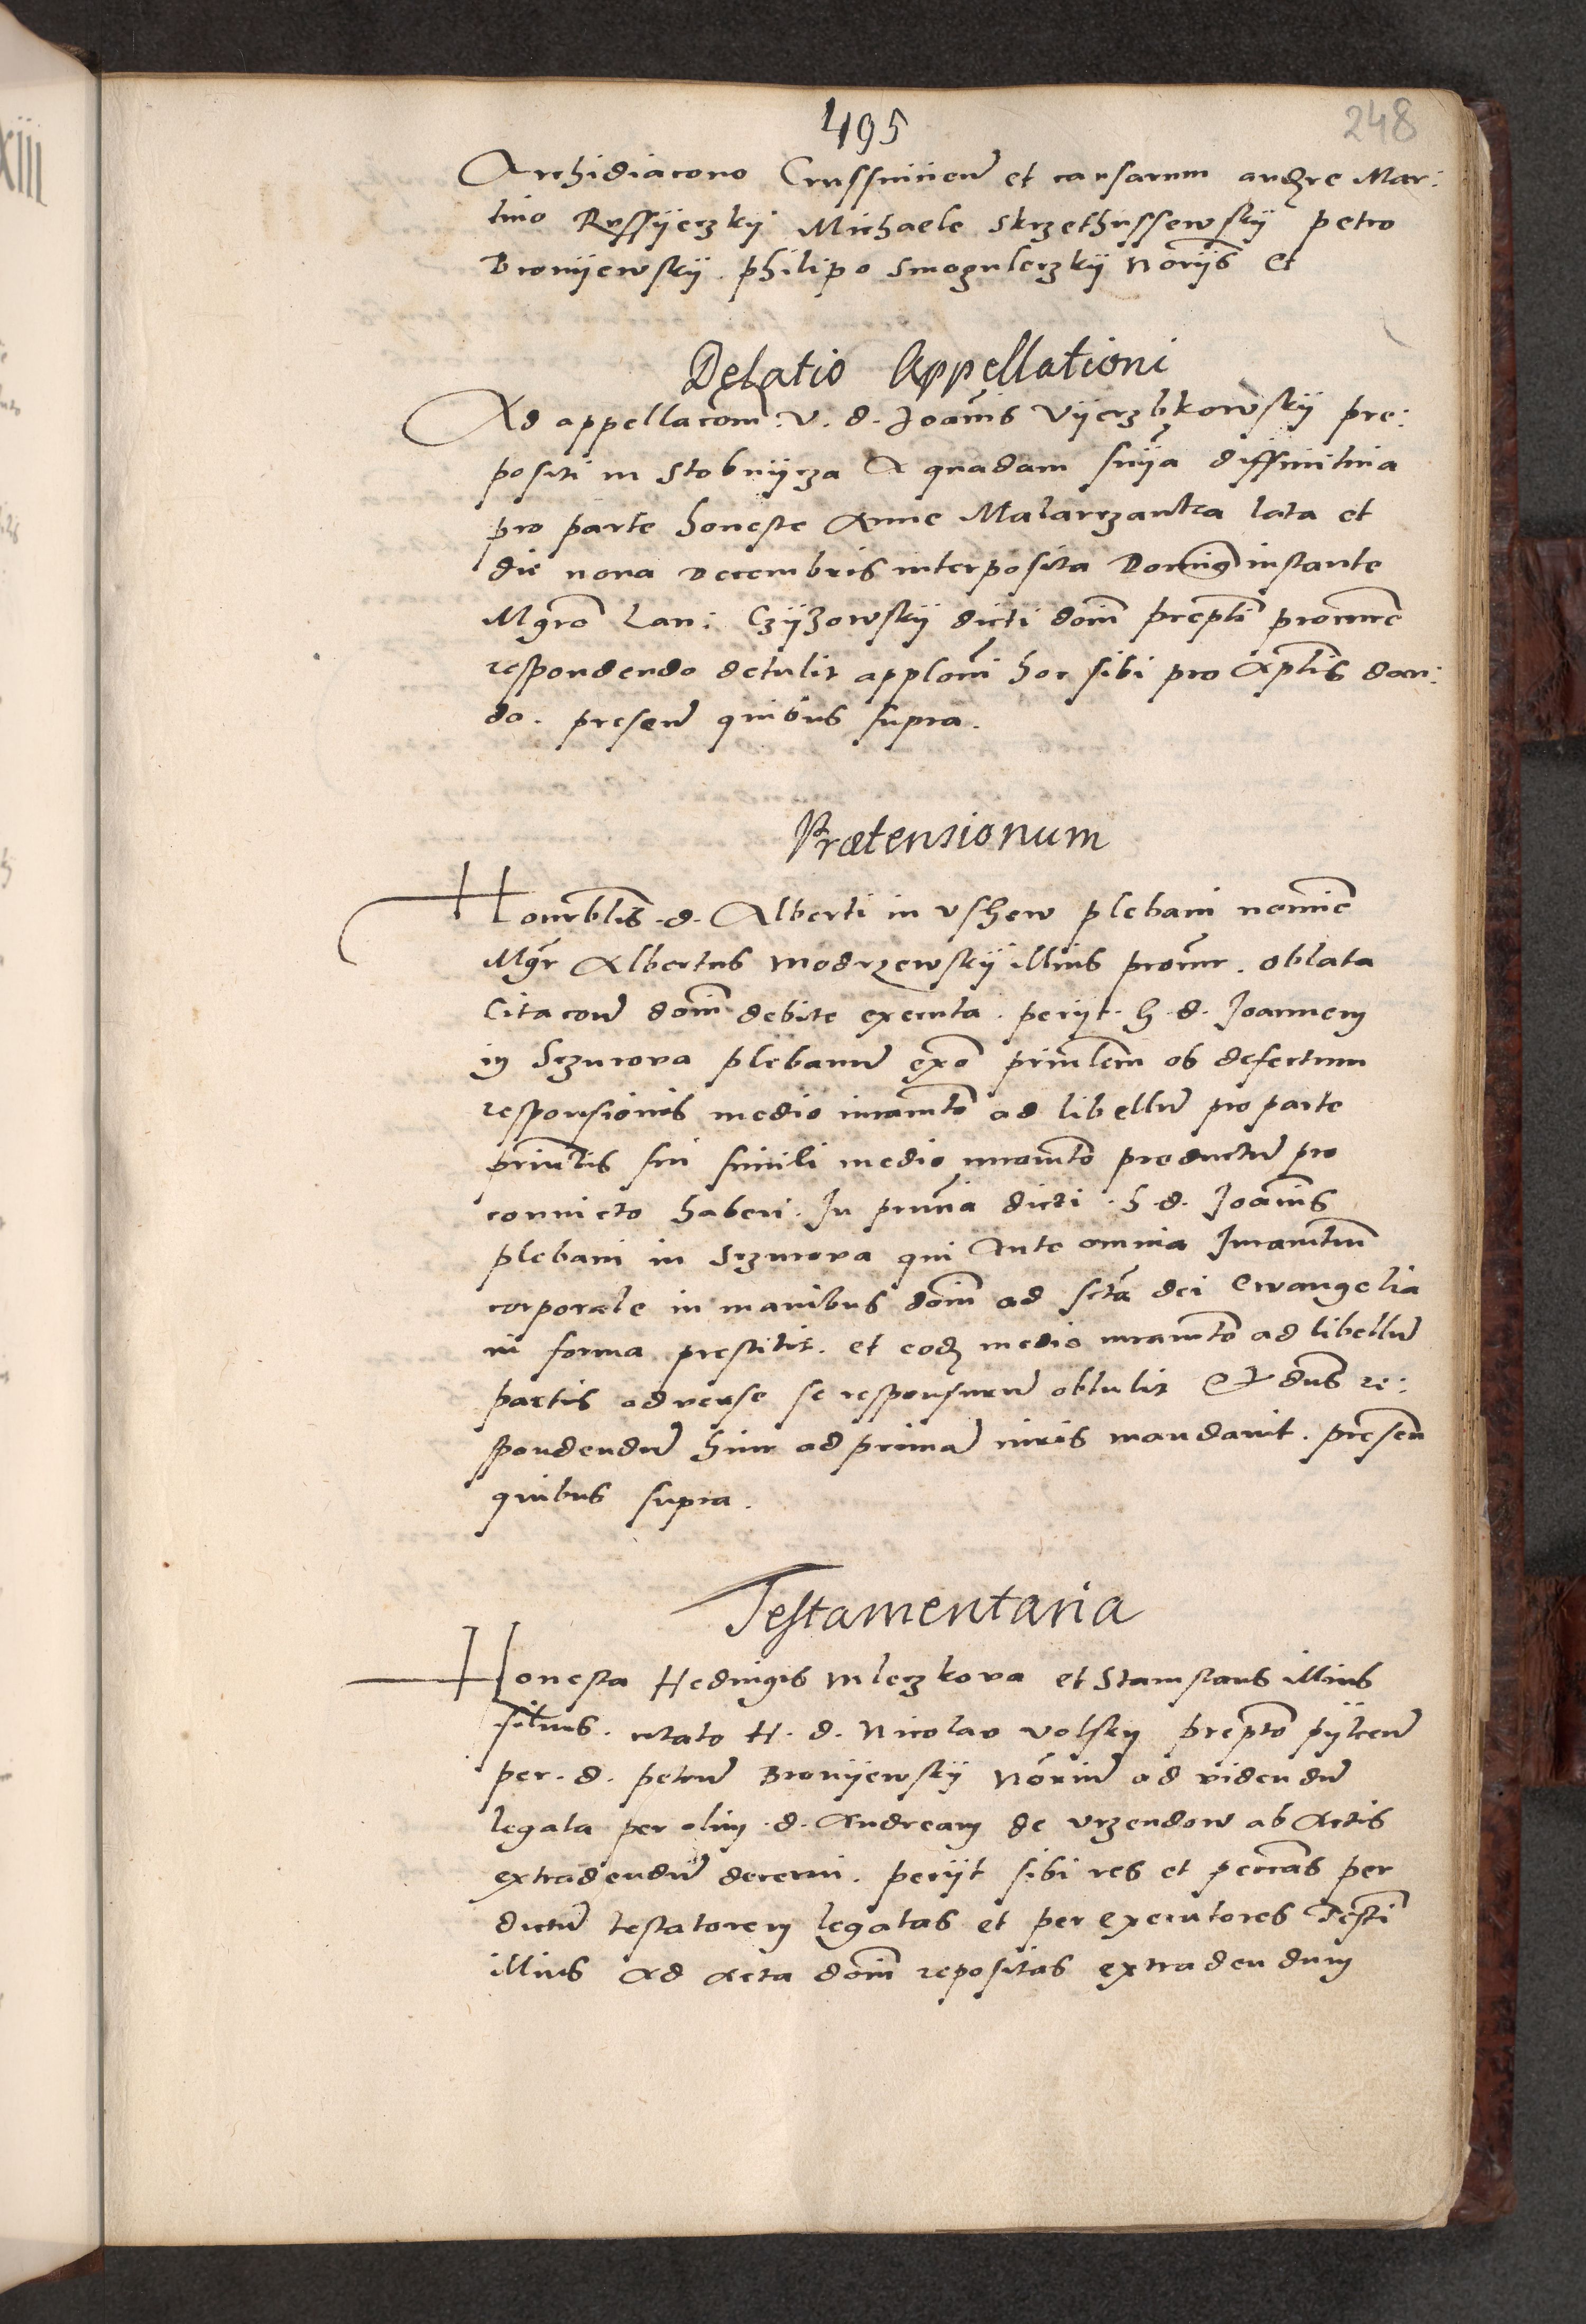 495
248
Archidiacono Crusswicien et causarum audre Mar:
tino Rossyeczky Michaele Skrzethussewsky petro
Bronyewsky. philipo Smogulerzky Noryis et
Delatio Appellationi
Ad appellacom: v. d. Joanis Vyerzbkowsky pre:
positi in Stobnycza A quadam snya diffinitiva
pro parte honeste Anne Malarzanka lata et
die nona Decembris interposita Doming instante
Mgro Lau: Czyzowsky dicti domi prepti procure
respondendo detulit applom hoc sibi pro Aptlis dan:
do. presen quibus supra.
Prætensionum
Honrblis. d. Alberti in Vshew plebani nomine
Mgr Albertus Modrzewsky illius procur. oblata
Citacone domi debite executa. petyt. H. d. Joannem
in Sczurova plebanu exo priulem ob defectum
responsionis medio iuramto ad libellu pro parte
priutis sui simili medio iuramto productu pro
convicto haberi. In pntia dicti. h. d. Joanis
plebani in Sczurova qui Ante omnia Juramtum
corporale in manibus domi ad scta dei Ewangelia
in forma prestitit. et eodz medio iuramto ad libellu
partis adverse se responsuru obtulit Et dns re:
spondendu hinc ad prima iuris mandavit. presen
quibus supra.
Testamentaria
Honesta Hedvigis Mleczkova et Stanislaus illius
filius. citato H. d. Nicolao Volsky prepto pylcen
per. d. petru Bronyewsky Noriu ad videndu
legata per olim. d. Andream de Vrzendow ab Actis
extradendu decerni. petyt sibi res et peccias per
dictu testatorem legatas et per executores Testi
illius Ad Acta domi repositas extradendum